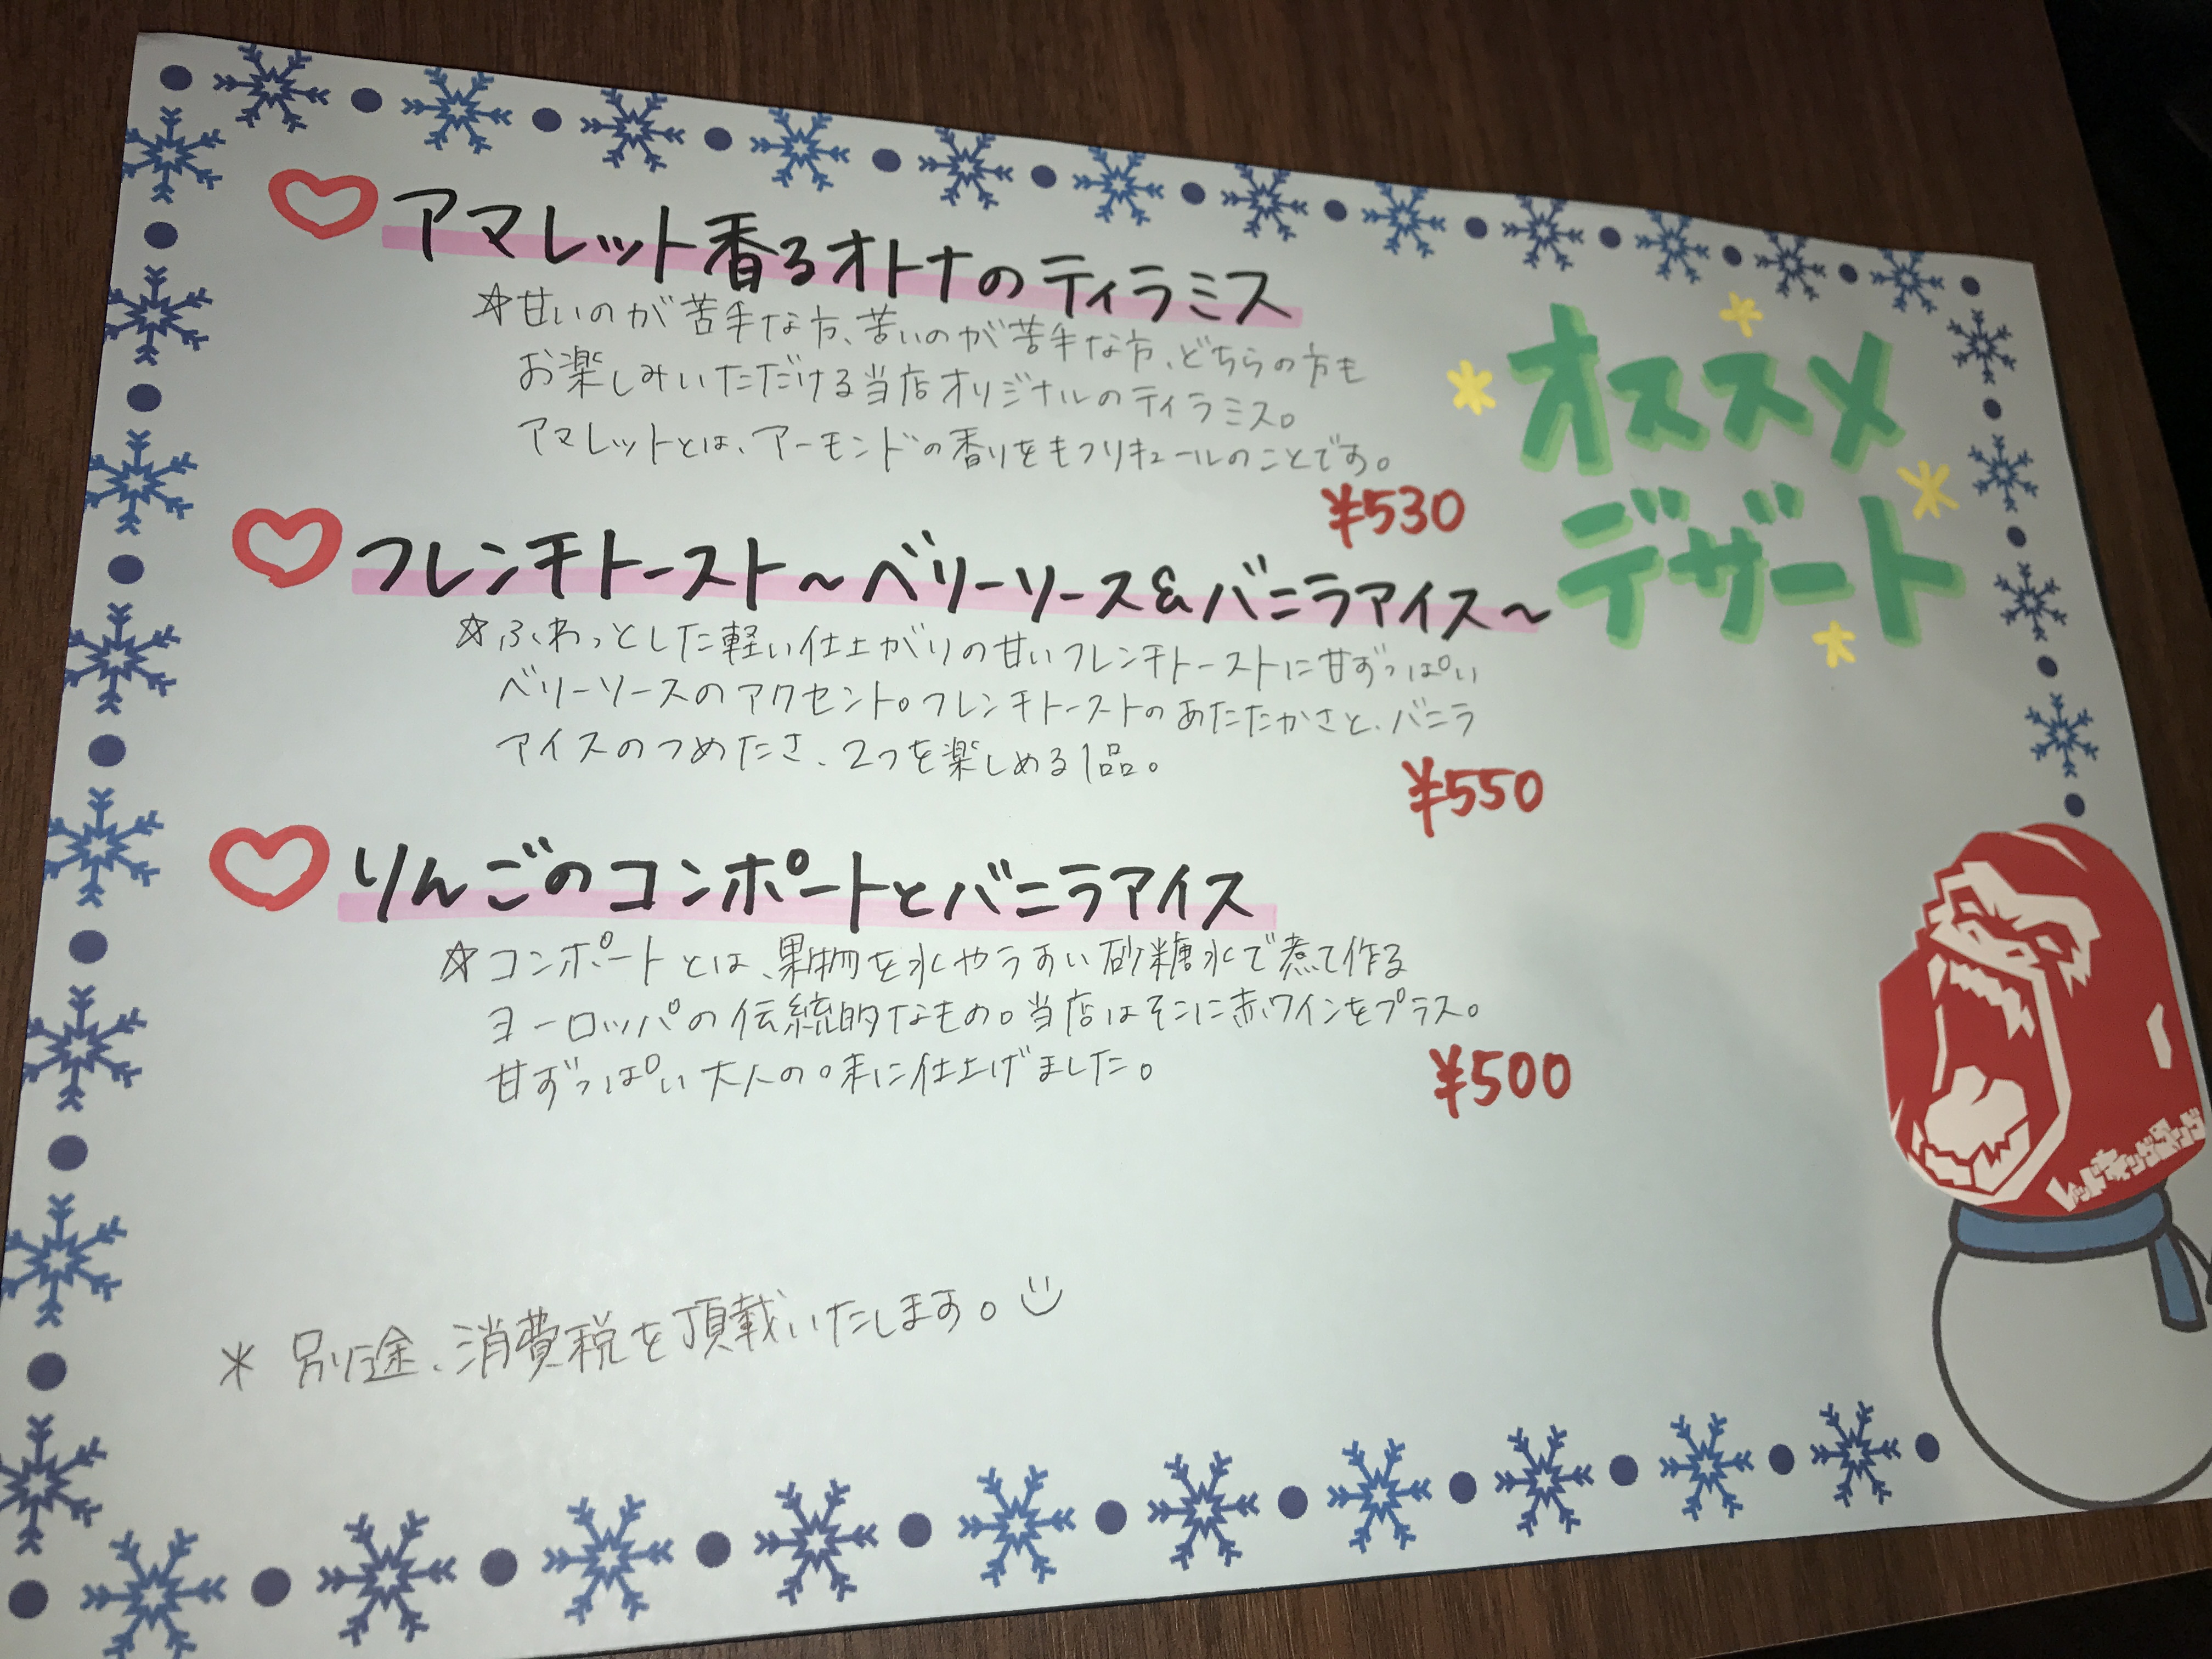 オススメ
デザート
アマレット香るオトナのティラミス
☆甘いのが苦手な方、苦いのが苦手な方、どちらの方も
お楽しみいただける当店オリジナルのティラミス。
アマレットとは、アーモンドの香りをもつリキュールのことです。
¥530
フレンチトースト～ベリーソース&バニラアイス～
☆ふわっとした軽い仕上がりの甘いフレンチトーストに甘ずっぱい
ベリーソースのアクセント。フレンチトーストのあたたかさと、バニラ
アイスのつめたさ、2つを楽しめる1品。
¥550
りんごのコンポートとバニラアイス
☆コンポートとは、果物を水やうすい砂糖水で煮て作る
ヨーロッパの伝統的なもの。当店はそこに赤ワインをプラス。
甘ずっぱい大人の味に仕上げました。
¥500
レッドキングコング
* 別途、消費税を頂載いたします。